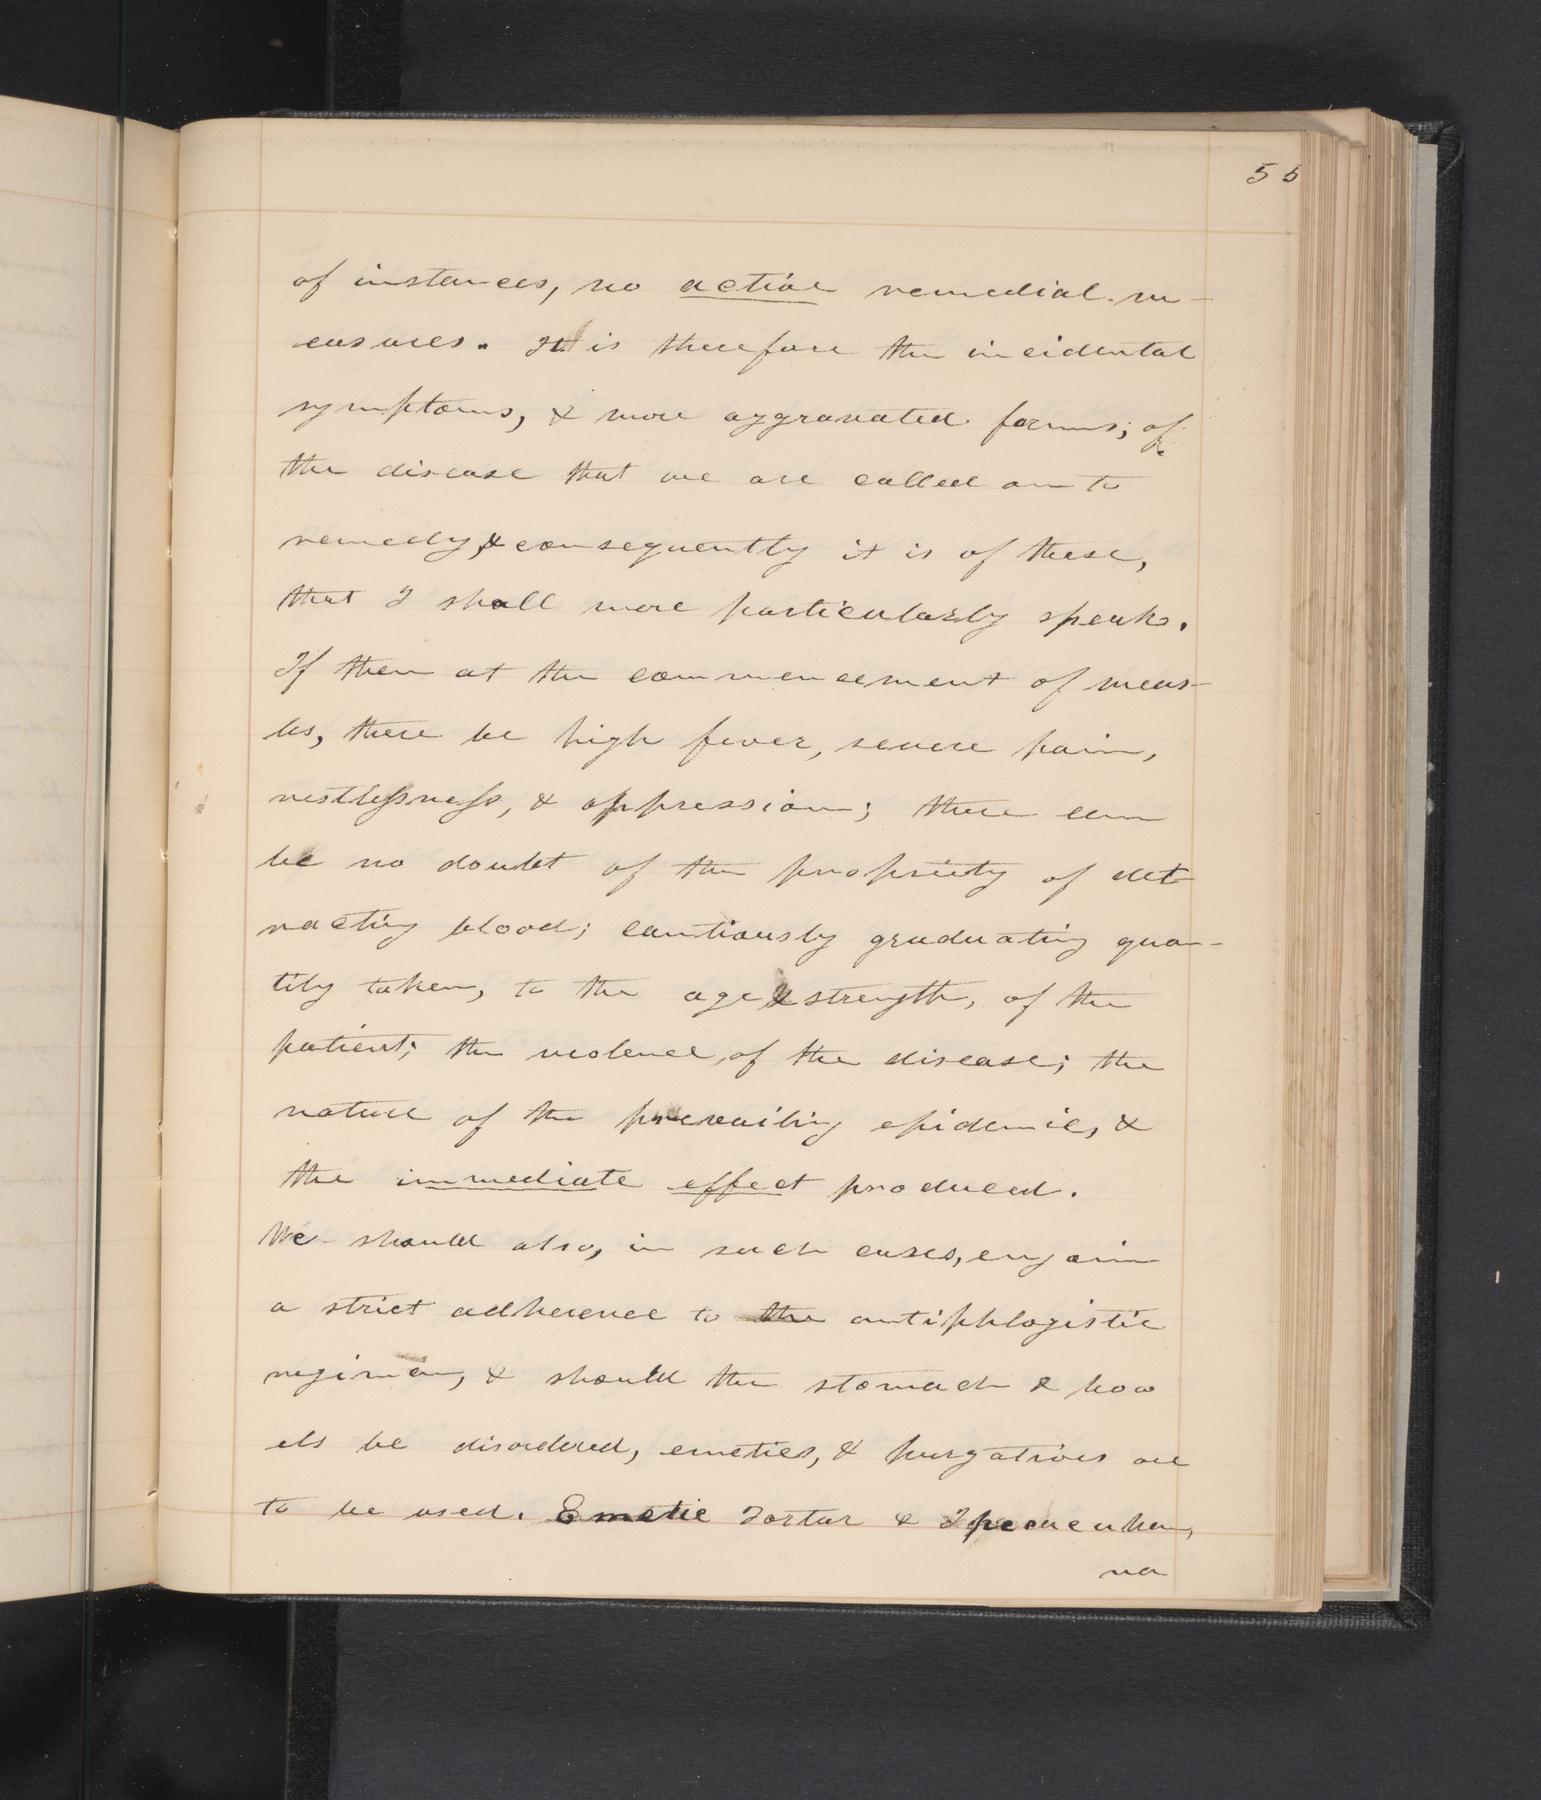 55
of instances, no active remedial m-
easures. It is therefore the incidental
symptoms, & more aggravated forms; of
the disease that we are called on to
remedy, & consequently it is of these,
that I shall more particularly speak.
If then at the commencement of meas-
les, there be high fever, severe pain,
restlessness, & oppression; there can
be no doubt of the propriety of det
racting blood; cautiously graduating quan-
tity taken, to the age & strength, of the
patient; the violence, of the disease; the
nature of the prevailing epidemic, &
the immediate effect produced.
We should also, in such cases, enjoin
a strict adherence to the antiphlogistic
regimen, & should the stomach & bow
els be disordered, emetics, & purgatives are
to be used. Emetic Tartar & Ipecacuhan,
na